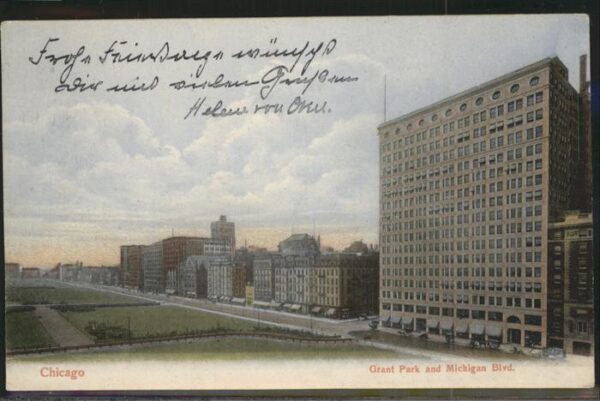 Frohe Feiertage wünscht
Dir mit vielen Grüßen
Helene von
Chicago
Grant Park and Michigan Blvd.